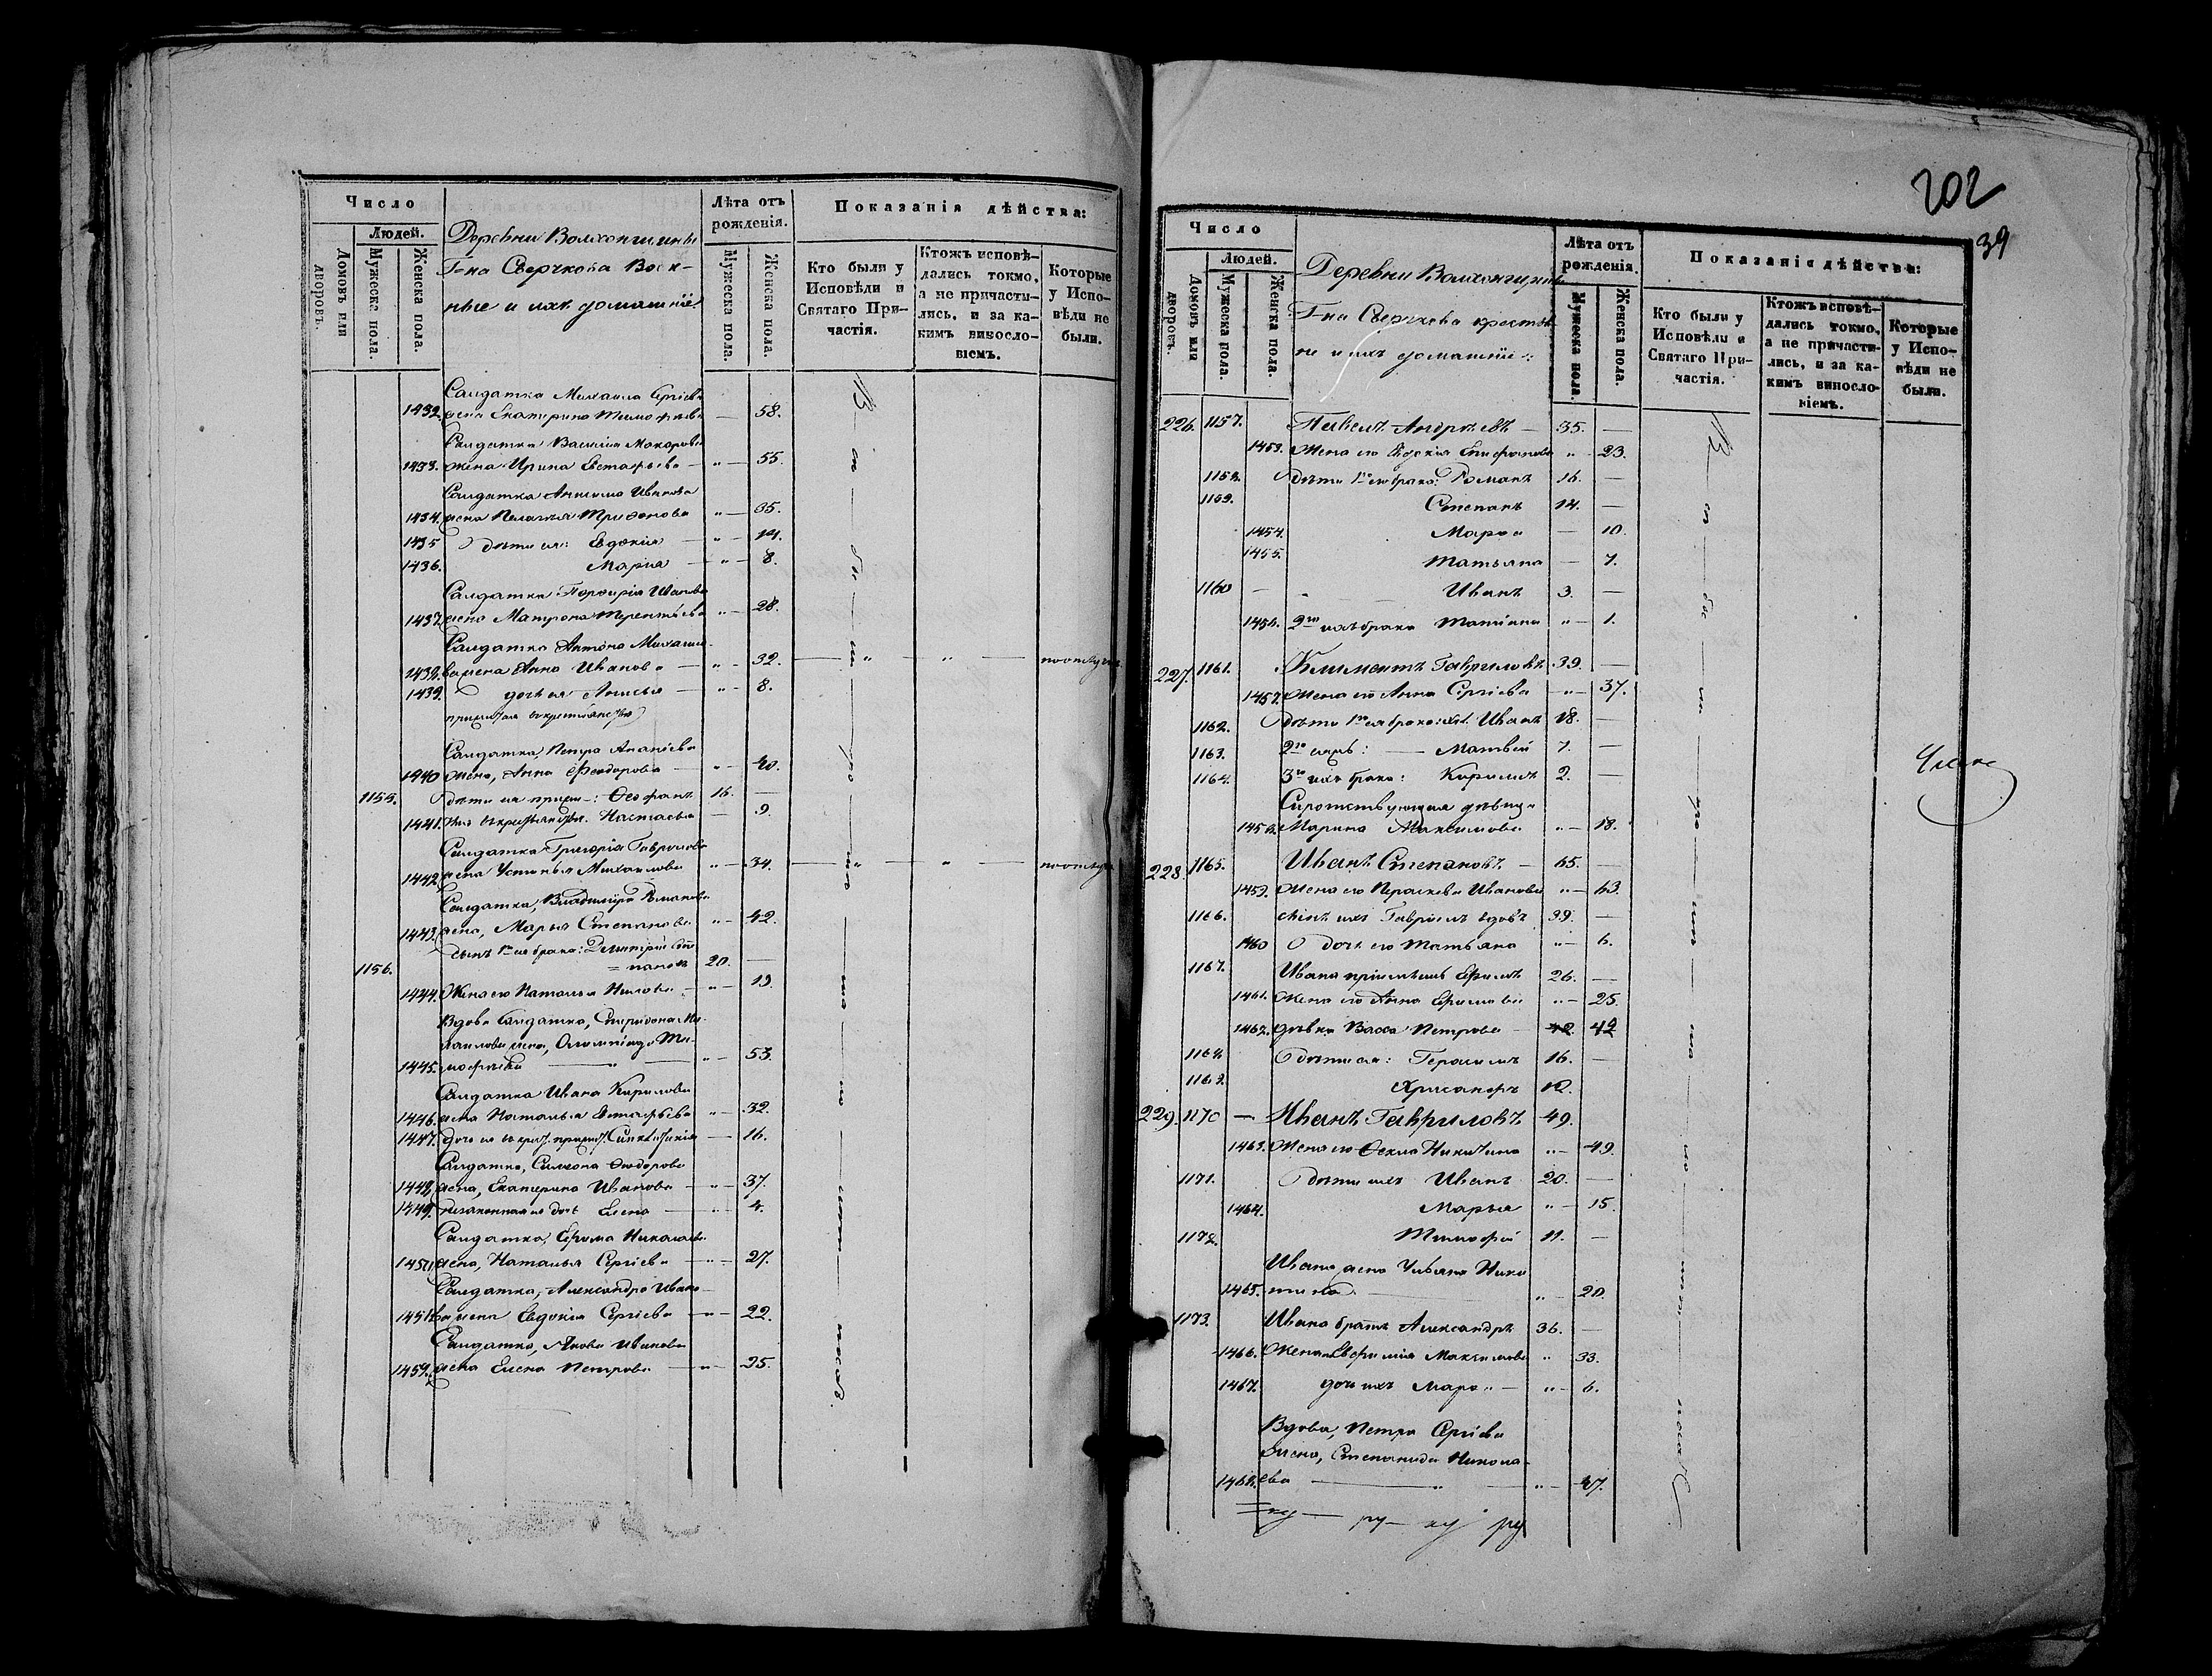 Число
Людей.
Домовъ или дворовъ.
Мужеска пола.
Женска пола.
Деревни Волхонщины
Г-на Сверчкова Воен-
ные и ихъ домашніе:
Лѣта отъ рожденія.
Мужеска пола.
Женска пола.
Показанія дѣйства:
Кто были у Исповѣди и Святаго Причастія.
Ктожъ исповѣдались токмо, а не причастились, и за какимъ винословіемъ.
Которые у Исповѣди не были.
Салдатка Михаила Сергіева
1432. жена Екатерина Тимофеева — 58.
Салдатка Василія Макарова
1433. жена Ирина Евстафьева — " — 55.
Салдатка Анисима Иванова
1434. жена Пелагія Трифонова " — 35.
1435 дѣти ея: Евдокія — " — 14.
1436. Марья — " — 8.
Салдатка Порфирія Иванова
1437. жена Матрона Терентьева " — 28.
Салдатка Антона Михаило-
1438. ва жена Анна Иванова — " — 32. — " — " — поотлуч.
1439. дочь ея Анисья — " — 8.
Салдатка, Петра Ананіева
1440 жена, Анна Феодорова — " — 40.
1155. дѣти ея Феофанъ 16. —
1441. Настасья — 9.
Салдатка Григорія Гаврилова
1442. жена Устинья Михайлова " — 34. — " — " — поотлуч.
Салдатка, Владиміра Романова
1443. жена, Марья Степанова " — 42.
сынъ 1го ея брака: Димитрій Сте-
1156. = пановъ 20. —
1444. Жена его Наталья — " — 19.
Вдова Салдатка, Спиридона Ми-
хайлова жена, Олимпіада Ти-
1445. мофеева — " — " — 53.
Салдатка Ивана Кирилова
1446. жена Наталья Астафьева " — 32.
1447. дочь ея Синклитикія — 16.
Салдатка, Симеона Феодорова
1448. жена, Екатерина Иванова — " — 37.
1449. незаконная ея дочь Елена — " — 4.
Салдатка, Ефима Николаева
1450. жена, Наталья Сергіева — " — 27.
Салдатка, Александра Ивано-
1451. ва жена Евдокія Сергіева — " — 22.
Салдатка, Якова Иванова
1452. жена Елена Петрова — " — 25.
202
39
Число
Людей.
Домовъ или дворовъ.
Мужеска пола.
Женска пола.
Деревни Волхонщины
Г-на Сверчкова крестья-
не и ихъ домашніе:
Лѣта отъ рожденія.
Мужеска пола.
Женска пола.
Показанія дѣйства:
Кто были у Исповѣди и Святаго Причастія.
Ктожъ исповѣдались токмо, а не причастились, и за какимъ винословіемъ.
Которые у Исповѣди не были.
226. 1157. Павелъ Андреевъ — 35. —
1453. Жена его Евдокія Епифанова " — 23.
1158. Дѣти 1го его брака: Романъ 16. —
1159. Степанъ 14. —
1454. Марфа — 10.
1455. Татьяна — 7.
1160 — Иванъ 3. —
1456. 2го ихъ брака Татіана " — 1.
227. 1161. Климентъ Гавриловъ 39. —
1457. Жена его Анна Сергіева — " — 37.
1162. Дѣти 1го ея брака: Иванъ 18. —
1163. 2го — Матвей 7. —
1164. 3го ихъ брака: Кирилъ 2. —
Сиротствующая дѣвица
1458. Марина Максимова " — 18.
228. 1165. Иванъ Степановъ — 65. —
1459. Жена его Параскева Иванова " — 63.
1166. сынъ ихъ Гавріилъ вдовъ 39. —
1460 дочь его Татьяна " — 6.
1167. Ивана пріемышъ Ефимъ 26. —
1461. Жена его Анна Ефимова " — 25.
1462. дѣвка Васса Петрова — 42 42
1168. дѣти ея: Герасимъ 16. —
1169. Хрисанфъ 12.
229. 1170 — Иванъ Гавриловъ 49.
1463. Жена его Фекла Никитина " — 49.
1171. дѣти ихъ Иванъ 20. —
1464. Марья " — 15.
1172. Тимофей 11. —
Ивана жена Ульяна Ники-
1465. тина — " — 20.
1173. Ивана братъ Александръ 36. —
1466. Жена его Евфимія Максимова " 33.
1467. дочь ихъ Марфа — " — 6.
Вдова, Петра Сергіева
жена, Степанида Никола-
1468. ева — " — " — 47.